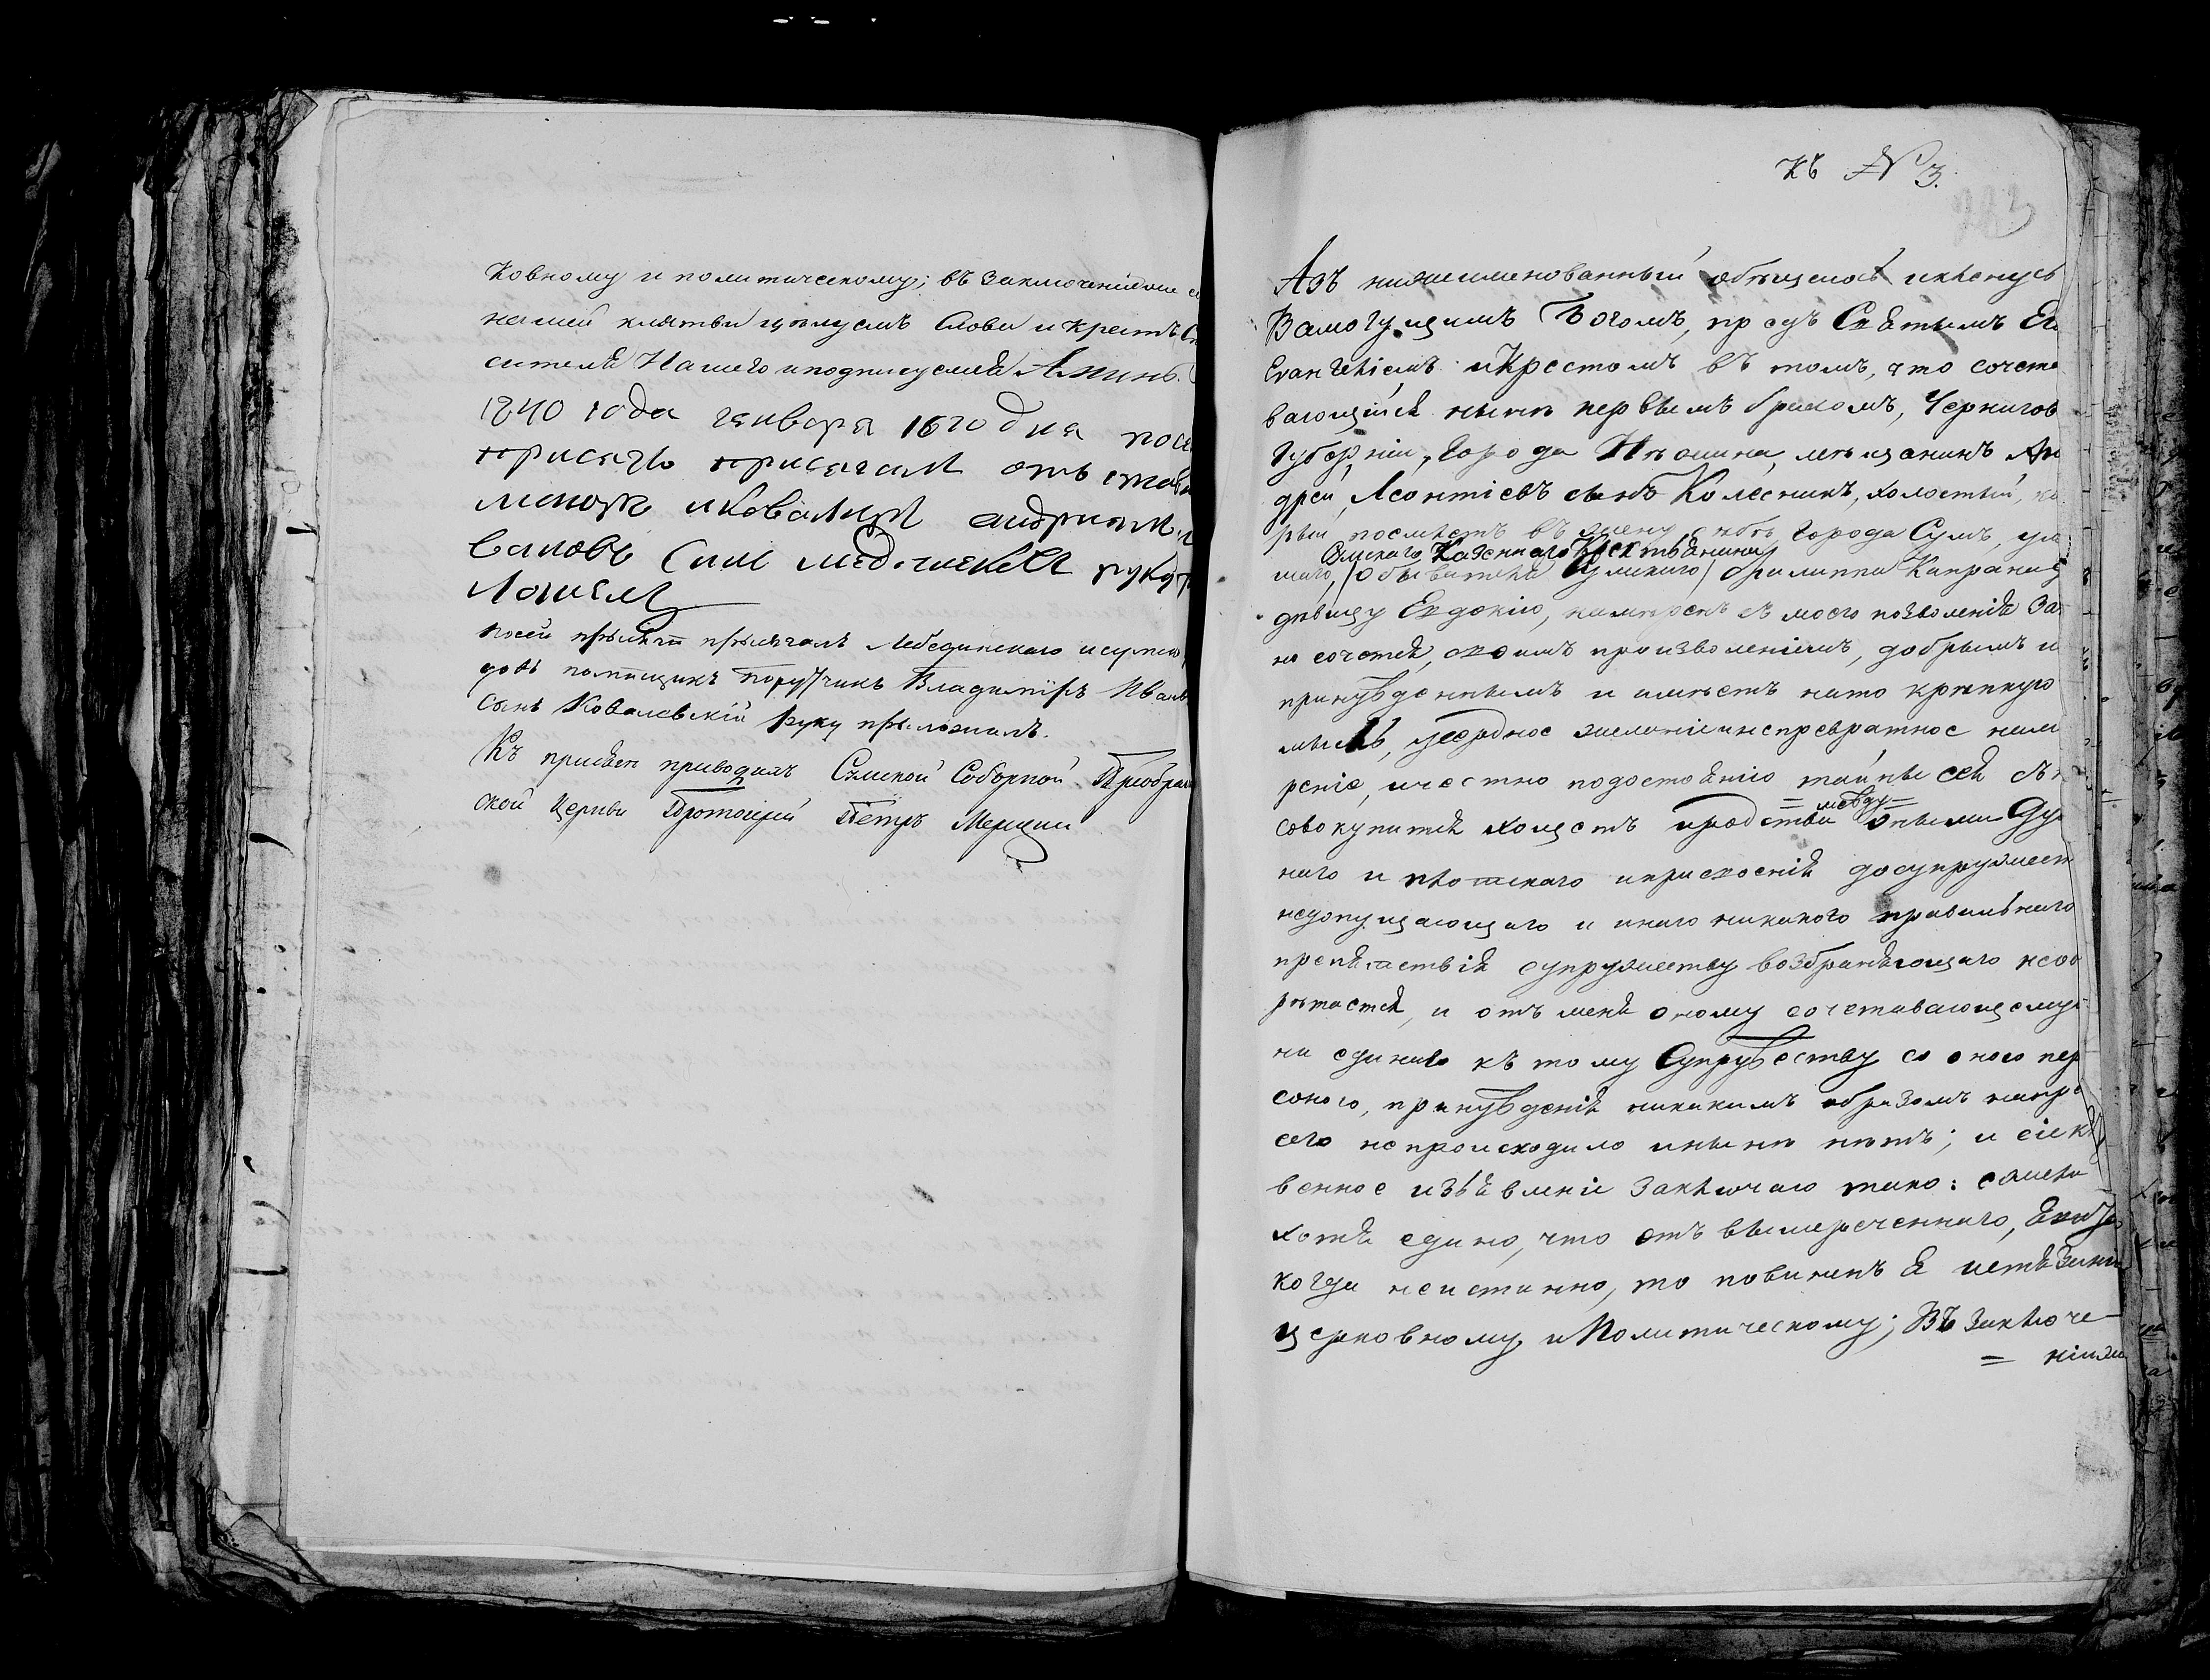 ковному и политическому; въ заключеніи же с
нашей клятвы цѣлуемъ Слова и крестъ Сп
сителя Нашего и подписуемся Аминь.
1840 года генваря 16го дня по се
присягю присягал отъ став
Ковалел андриян
вановъ Син
ложил
по сей присягѣ присягалъ Лебединскаго и сумско
довъ помѣщикъ поручикъ Владиміръ Ивано
сынъ Ковалевскій руку приложилъ.
Къ присягѣ приводилъ Сумской Соборной Преображ
ской Церкви Протоіерей Петръ
Къ № 3.
Азъ нижеименованный обѣщаюсь и клянусь
Всемогущимъ Богомъ, предъ Святымъ Ег
Евангеліемъ и Крестомъ въ томъ, что сочета
вающійся нынѣ первымъ бракомъ, Чернигов
Губерніи, города Нѣжина, мѣщанинъ Ан
дрей, Леонтіевъ сынъ Колесникъ, холостый, ко
рый поемлетъ въ жену себѣ города Сумъ, уме
Сумскаго Казеннаго Крестьянина
шаго, /обывателя Сумскаго/ Филиппа Капрана
дѣвицу Евдокію, намѣренъ съ моего позволенія за
но сочетая, своимъ произволеніемъ, добрымъ и
принужденнымъ и имѣетъ на то крѣпкую
мысль, усердное желаніе и непревратное намѣ
реніе, и честно по достоянію тайны сея съ н
совокупитися хощетъ и родства = между = оными Ду
наго и плотскаго и присвоенія до супружест
недопущающаго и инаго никакого правильнаго
препятствія супружеству возбраняющаго не об
рѣтается, и отъ меня оному сочетавающемуся
ни единаго къ тому Супружеству со оною пер
соною, принужденія никакимъ образомъ напре
сего не происходило и нынѣ нѣтъ; и сіе кл
венное изъявленіе заключаю тако: ежели
хотя едино, что отъ вышереченнаго, явит
когда неистинно, то повиненъ я истязанію
церковному и Политическому; Въ заключе-
= ніи же